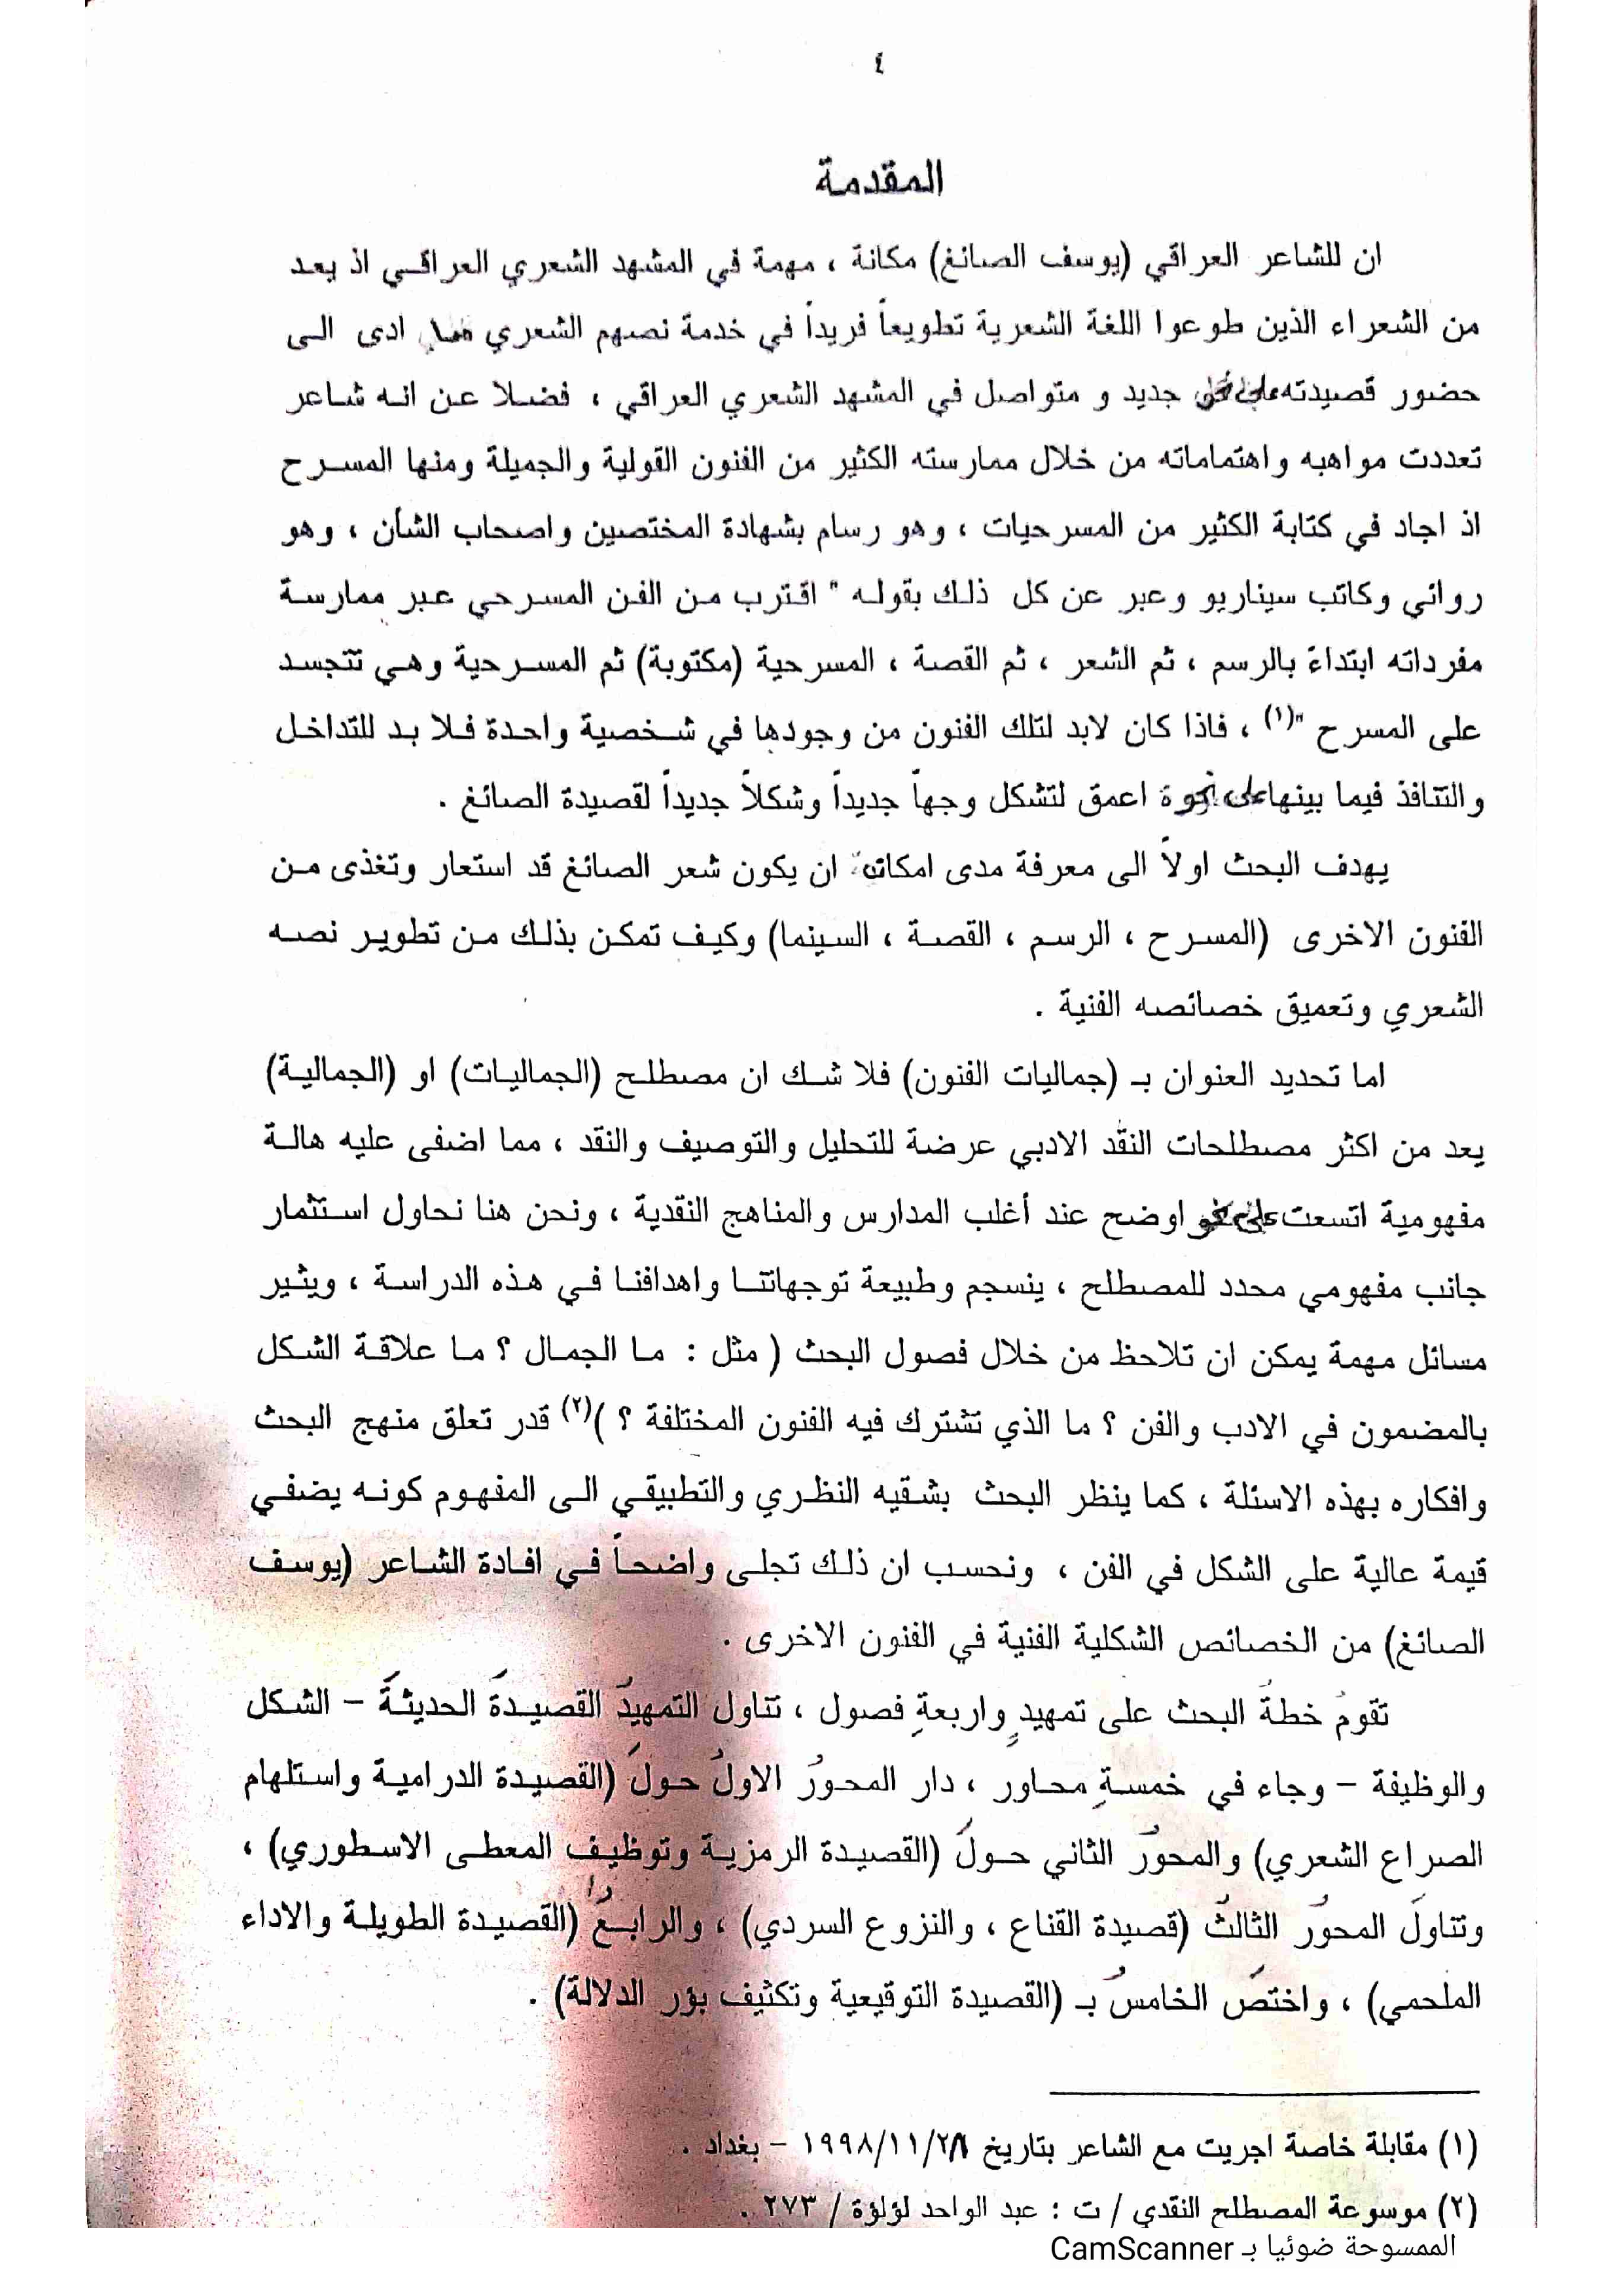 ٤
المقدمة
ان للشاعر العراقي (يوسف الصائغ) مكانة ، مهمة في المشهد الشعري العراقي اذ يعد
من الشعراء الذين طوعوا اللغة الشعرية تطويعاً فريداً في خدمة نصهم الشعري مما ادى الى
حضور قصيدته على نحو جديد و متواصل في المشهد الشعري العراقي ، فضلا عن انه شاعر
تعددت مواهبه واهتماماته من خلال ممارسته الكثير من الفنون القولية والجميلة ومنها المسرح
اذ اجاد في كتابة الكثير من المسرحيات ، وهو رسام بشهادة المختصين واصحاب الشأن ، وهو
روائي وكاتب سيناريو وعبر عن كل ذلك بقوله " اقترب من الفن المسرحي عبر ممارسة
مفرداته ابتداءً بالرسم ، ثم الشعر ، ثم القصة ، المسرحية (مكتوبة) ثم المسرحية وهي تتجسد
على المسرح "(١) ، فاذا كان لابد لتلك الفنون من وجودها في شخصية واحدة فلا بد للتداخل
والتنافذ فيما بينها على اعمق لتشكل وجهاً جديداً وشكلاً جديداً لقصيدة الصائغ .
يهدف البحث اولاً الى معرفة مدى ان يكون شعر الصائغ قد استعار وتغذى من
الفنون الاخرى (المسرح ، الرسم ، القصة ، السينما) وكيف تمكن بذلك من تطوير نصه
الشعري وتعميق خصائصه الفنية .
اما تحديد العنوان بـ (جماليات الفنون) فلا شك ان مصطلح (الجماليات) او (الجمالية)
يعد من اكثر مصطلحات النقد الادبي عرضة للتحليل والتوصيف والنقد ، مما اضفى عليه هالة
مفهومية اتسعت على نحو اوضح عند أغلب المدارس والمناهج النقدية ، ونحن هنا نحاول استثمار
جانب مفهومي محدد للمصطلح ، ينسجم وطبيعة توجهاتنا واهدافنا في هذه الدراسة ، ويثير
مسائل مهمة يمكن ان تلاحظ من خلال فصول البحث ( مثل : ما الجمال ؟ ما علاقة الشكل
بالمضمون في الادب والفن ؟ ما الذي تشترك فيه الفنون المختلفة ؟ )(٢) قدر تعلق منهج البحث
وافكاره بهذه الاسئلة ، كما ينظر البحث بشقيه النظري والتطبيقي الى المفهوم كونه يضفي
قيمة عالية على الشكل في الفن ، ونحسب ان ذلك تجلى واضحاً في افادة الشاعر (يوسف
الصائغ) من الخصائص الشكلية الفنية في الفنون الاخرى .
تقومُ خطةُ البحث على تمهيدٍ واربعةِ فصول ، تناول التمهيدُ القصيدةَ الحديثةَ – الشكل
والوظيفة – وجاء في خمسةِ محاور ، دار المحورُ الاولُ حولَ (القصيدة الدرامية واستلهام
الصراع الشعري) والمحورُ الثاني حولَ (القصيدة الرمزية وتوظيف المعطى الاسطوري) ،
وتناولَ المحورُ الثالثُ (قصيدة القناع ، والنزوع السردي) ، والرابعُ (القصيدة الطويلة والاداء
الملحمي) ، واختصَ الخامسُ بـ (القصيدة التوقيعية وتكثيف بؤر الدلالة) .
(١) مقابلة خاصة اجريت مع الشاعر بتاريخ ١٩٩٨/١١/٢٨ – بغداد .
(٢) موسوعة المصطلح النقدي / ت : عبد الواحد لؤلؤة / ٢٧٣ .
الممسوحة ضوئيا بـ CamScanner